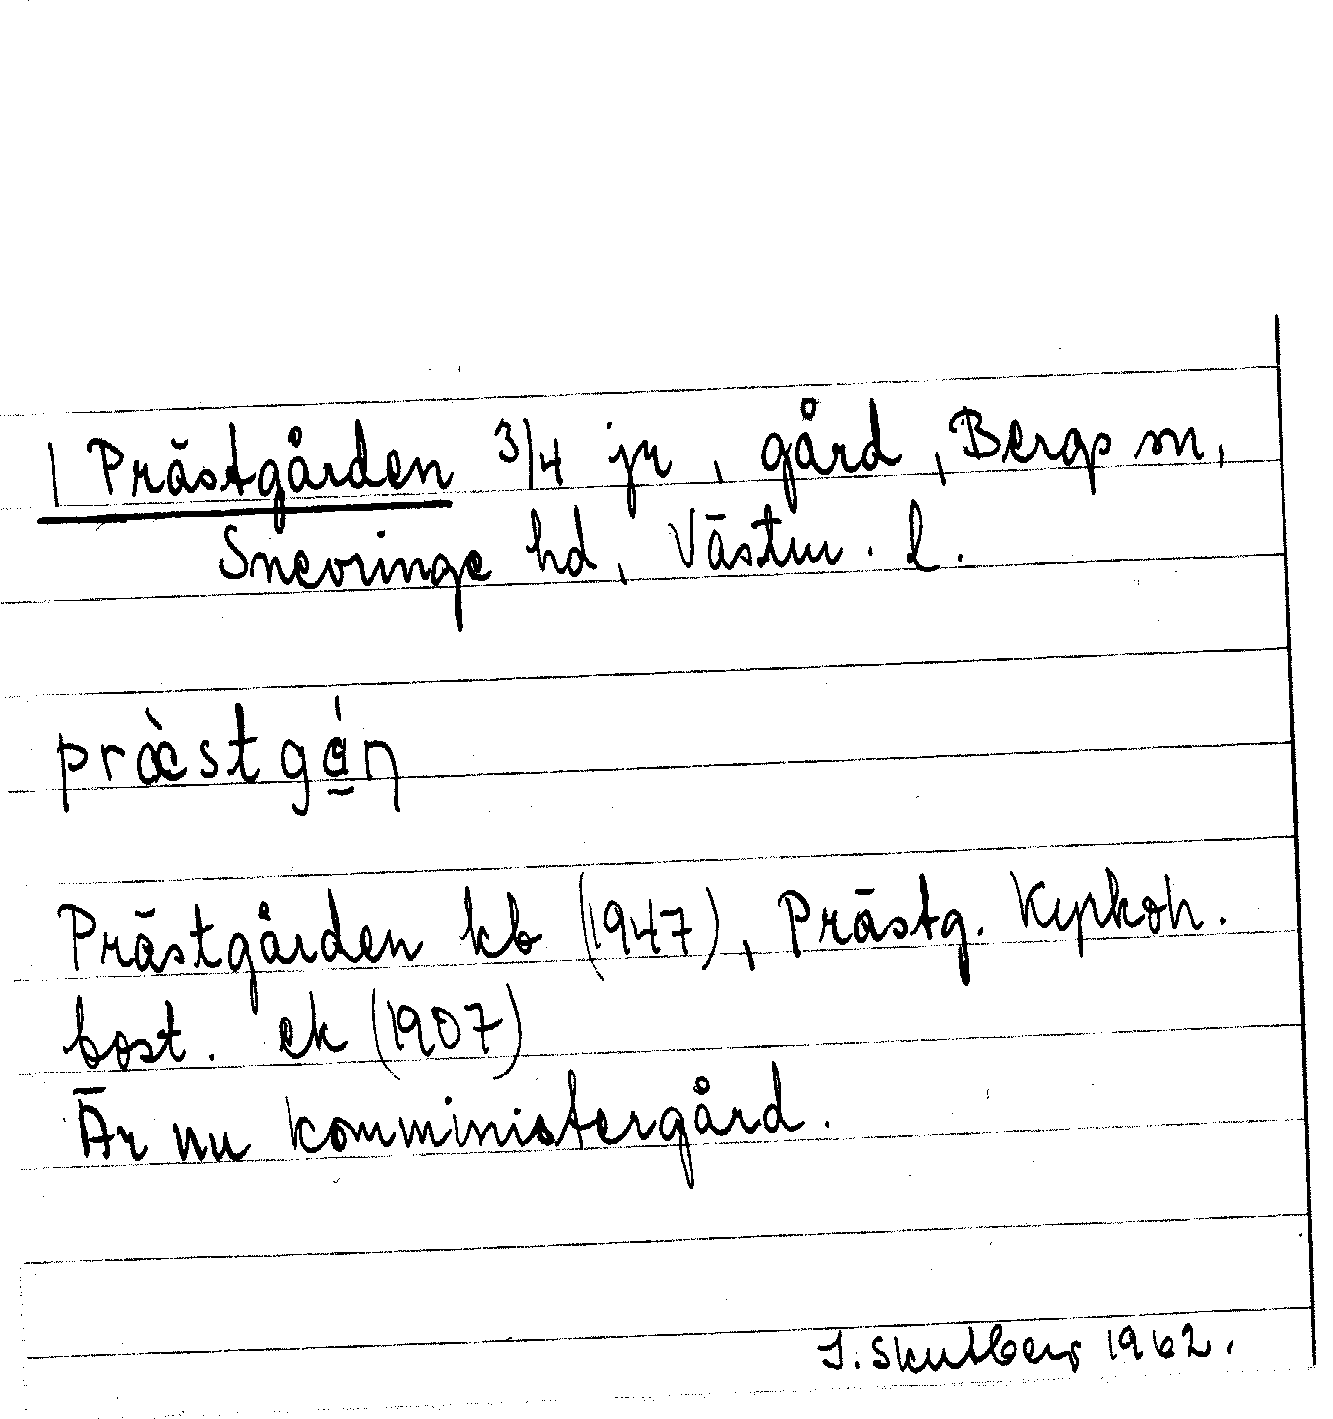 1 Prästgården 3/4 jr, gård, Bergs sn,
Snevringe hd, Västm. l.
præ̀stgán
Prästgården kb (1947), Prästg. Kyrkoh.
bost. ek (1907)
Är nu komministergård.
J. Skutberg 1962.